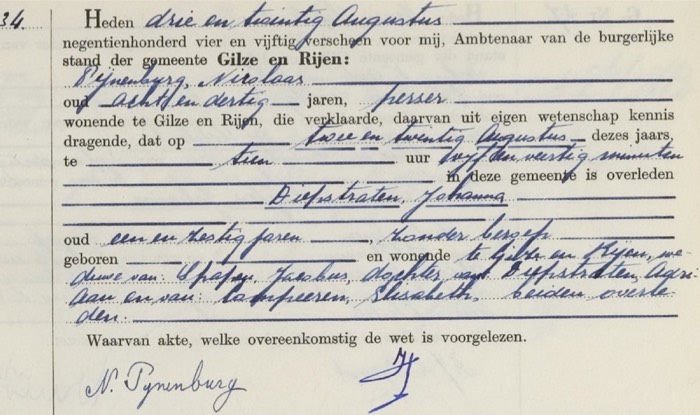 34.
Heden drie en twintig Augustus
negentienhonderd vier en vijftig verscheen voor mij, Ambtenaar van de burgerlijke
stand der gemeente Gilze en Rijen:
Pijnenburg, Nicolaas
oud acht en dertig jaren, perser
wonende te Gilze en Rijen, die verklaarde, daarvan uit eigen wetenschap kennis
dragende, dat op twee en twintig Augustus dezes jaars,
te tien uur vijf en veertig minuten
in deze gemeente is overleden
Diepstraten, Johanna
oud een en zestig jaren, zonder beroep
geboren en wonende te Gilze en Rijen, we-
duwe van: Spapen, Jacobus, dochter van Diepstraten, Adri-
aan en van: Lampeeren, Elisabeth, beiden overle-
den.
Waarvan akte, welke overeenkomstig de wet is voorgelezen.
N. Pynenburg